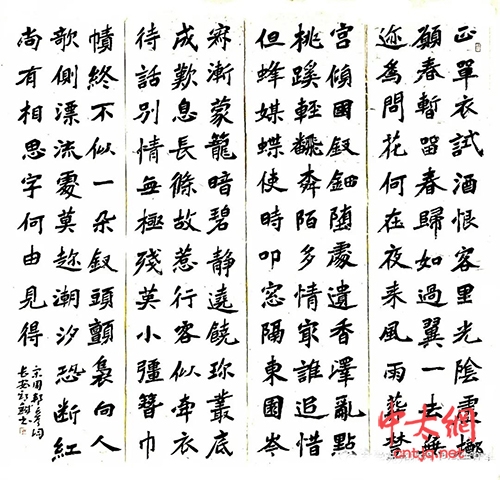 正單衣試酒恨客里光陰虛擲
願春暫留春歸如過翼一去無
迹為問花何在夜来風雨葬楚
宮傾國釵鈿堕處遺香澤亂點
桃蹊輕飜陌多情最誰追惜
但蜂媒蝶使時叩窓隔東園岑
寂漸蒙籠暗碧靜遶饒珍叢底
成歎息長條故惹行客似牽衣
待話別情無極殘英小彊簪巾
幘終不似一朵釵頭顫裊向人
欹側漂流處莫趂潮汐恐断紅
尚有相思字何由見得
宋周邦彦詞
长安
中大網
cntjq.net